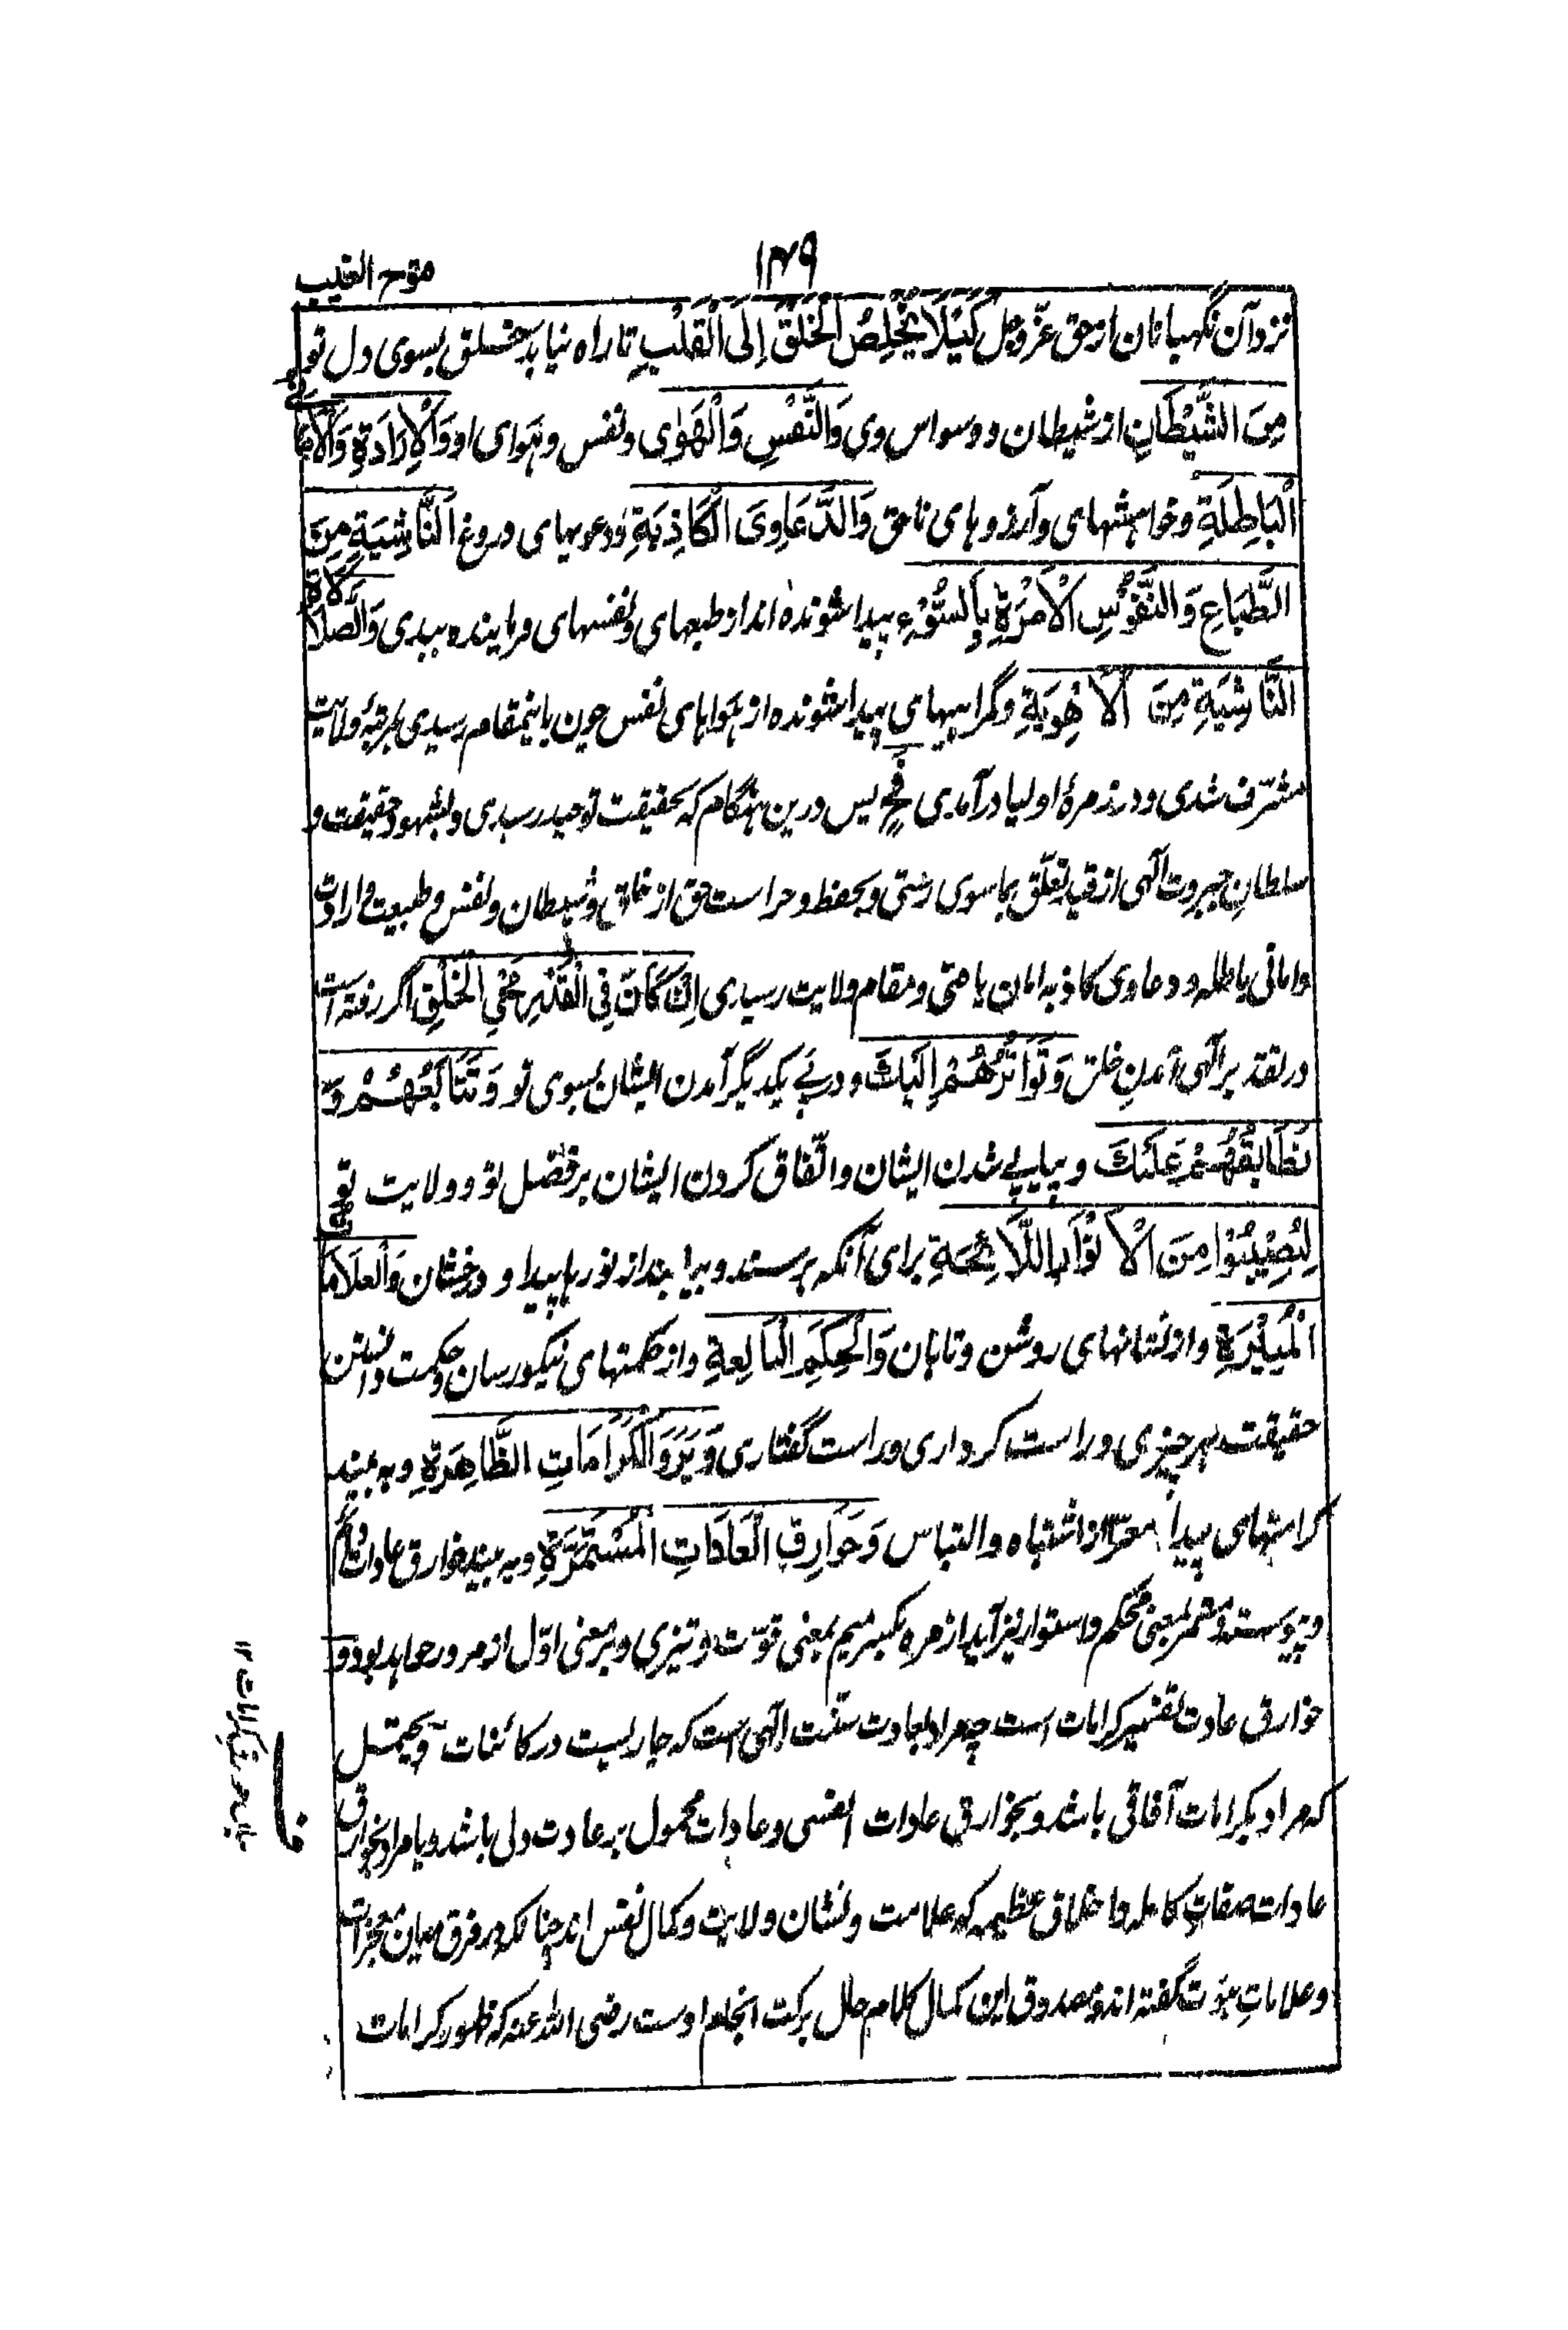 ۱۴۹
فتوح الغیب
نزد آن نگهبانان از حق عزّوجل كَيْلَا يَخْلُصُ الْخَلْقُ إِلَى الْقَلْبِ تا راه نیابد خلق بسوی دل تو
مِنَ الشَّيْطَانِ از شیطان و وسواس وی وَالنَّفْسِ وَالْهَوٰى و نفس و هوای او وَالْإِرَادَةِ وَالْأَمَانِي
الْبَاطِلَةِ و خواهشهای و آرزوهای ناحق وَالدَّعَاوِى الْكَاذِبَةِ و دعویهای دروغ النَّاشِيَةِ مِنَ
الطِّبَاعِ وَالنُّفُوسِ الْأَمَّرَةِ بِالسُّوْءِ پیدا شونده اند از طبعهای و نفسهای فرماینده ببدی وَالضَّلَالَةِ
النَّاشِيَةِ مِنَ الْأَهْوِيَةِ و گمراهیهای پیدا شونده از هواهای نفس چون باینمقام رسیدی بمرتبۀ ولایت
مشرّف شدی و در زمرۀ اولیا درآمدی فَحِ پس درین هنگام که بحقیقت توحید رسیدی و بشهود حقیقت و
سلطان جبروت الٰهی از قید تعلّق بماسوی رستی و بحفظ و حراست حق از خلق و شیطان و نفس و طبیعت و ارادت
و امانی باطله و دعاوی کاذبه امان یافتی و مقام ولایت رسیدی اِنْ كَانَ فِى الْقَدْرِ مَجِيُ الْخَلْقِ اگر رفته است
در تقدیر الٰهی آمدن خلق وَتَوَاتُرُهُمْ إِلَيْكَ و در پے یکدیگر آمدن ایشان بسوی تو وَتَتَابُعُهُمْ وَ
تَطَابُقُهُمْ عَلَيْكَ و پیاپے شدن ایشان و اتّفاق کردن ایشان بر فضل تو و ولایت تو
لِيُصِيْبُوْا مِنَ الْأَنْوَارِ اللَّائِحَةِ برای آنکه برسند و بیابند از نورها پیدا و درخشان وَالْعَلَامَاتِ
الْمُنِيْرَةِ و از نشانهای روشن و تابان وَالْحِكَمِ الْبَالِغَةِ و از حکمتهای نیکو رسان و حکمت دانستن
حقیقت هر چیزی و راست کرداری و راست گفتاری وَيَرَوُا الْكَرَامَاتِ الظَّاهِرَةِ و به بینند
کرامتهای پیدا معرّا از اشتباه و التباس وَخَوَارِقِ الْعَادَاتِ الْمُسْتَمِرَّةِ و به بینند خوارق عادات دائم
و پیوسته و مستمر بمعنی محکم و استوار نیز آید از مره بکسر میم بمعنی قوّت و تیزی و بر معنی اوّل از مرور خواهد بود و
خوارق عادت تفسیر کرامات است چه مراد بعادت سنّت الٰهی است که جاریست در کائنات و یحتمل
که مراد بکرامات آفاقی باشد و بخوارق عادات انفسی و عادات محمول بر عادت ولی باشد و یا مراد بخوارق
عادات صفات کامله و اخلاق عظیمه که علامت و نشان ولایت و کمال نفس اند چنانکه در فرق میان معجزات
و علامات نبوّت گفته اند و مصدوق این کمال کلام حال برکت انجام اوست رضی الله عنه که ظهور کرامات